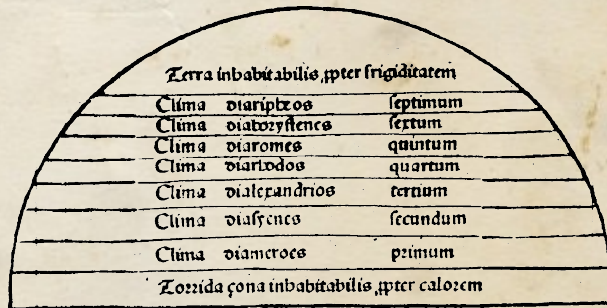 Terra inhabitabilis ꝓpter frigiditatem
Clima diaripheos septimum
Clima diaboryſtenes ſextum
Clima diaromes quintum
Clima diarhodos quartum
Clima dialexandrios tertium
Clima diaſyenes ſecundum
Clima diameroes primum
Torrida çona inhabitabilis ꝓpter calorem